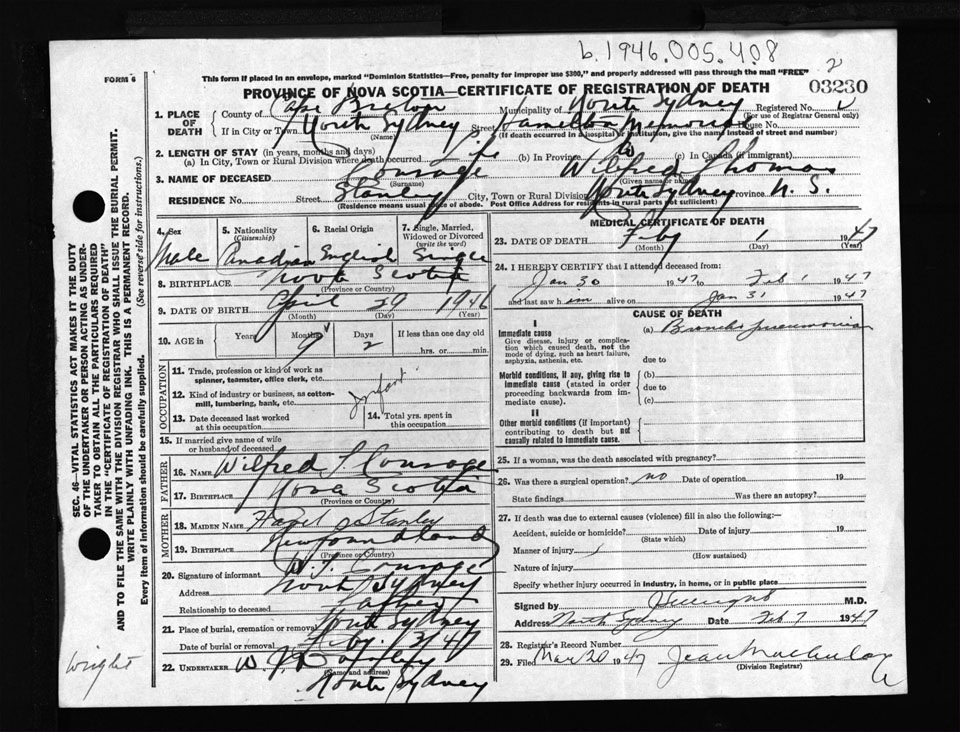 b.1946.005.408
2
FORM 6
This form if placed in an envelope, marked "Dominion Statistics—Free, penalty for improper use $300," and properly addressed will pass through the mail "FREE"
PROVINCE OF NOVA SCOTIA—CERTIFICATE OF REGISTRATION OF DEATH
03230
1. PLACE OF DEATH
County of Cape Breton Municipality of North Sydney Registered No.
(For use of Registrar General only)
If in City or Town North Sydney Street Hamilton Memorial House No.
(Name) (If death occurred in a hospital or institution, give the name instead of street and number)
2. LENGTH OF STAY (in years, months and days)
(a) In City, Town or Rural Division where death occurred Life (b) In Province (c) In Canada (if immigrant)
3. NAME OF DECEASED Courage Wilfred Thomas
(Surname) (Given name or names)
RESIDENCE No. Street Stanley City, Town or Rural Division North Sydney Province N. S.
(Residence means usual place of abode. Post Office Address for residents in rural parts not sufficient)
4. Sex Male
5. Nationality (Citizenship) Canadian
6. Racial Origin English
7. Single, Married, Widowed or Divorced (write the word) Single
8. BIRTHPLACE Nova Scotia
(Province or Country)
9. DATE OF BIRTH April 29 1946
(Month) (Day) (Year)
10. AGE in Years Months 9 Days 2 If less than one day old
hrs. or min.
OCCUPATION
11. Trade, profession or kind of work as spinner, teamster, office clerk, etc.
12. Kind of industry or business, as cotton-mill, lumbering, bank, etc.
Infant
13. Date deceased last worked at this occupation
14. Total yrs. spent in this occupation
15. If married give name of wife or husband of deceased
FATHER
16. NAME Wilfred T Courage
17. BIRTHPLACE Nova Scotia
(Province or Country)
MOTHER
18. MAIDEN NAME Hazel Stanley
19. BIRTHPLACE Newfoundland
(Province or Country)
20. Signature of informant W. T. Courage
Address North Sydney
Relationship to deceased Father
21. Place of burial, cremation or removal North Sydney
Date of burial or removal Feby. 3/47
22. UNDERTAKER W. J.
(Name and address)
North Sydney
MEDICAL CERTIFICATE OF DEATH
23. DATE OF DEATH Feby 1 1947
(Month) (Day) (Year)
24. I HEREBY CERTIFY that I attended deceased from:
Jan 30 1947 to Feb 1 1947
and last saw him alive on Jan 31 1947
CAUSE OF DEATH
I
Immediate cause
Give disease, injury or complication which caused death, not the mode of dying, such as heart failure, asphyxia, asthenia, etc.
(a) Broncho pneumonia
due to
Morbid conditions, if any, giving rise to immediate cause (stated in order proceeding backwards from immediate cause).
(b)
due to
(c)
II
Other morbid conditions (if important) contributing to death but not causally related to immediate cause.
25. If a woman, was the death associated with pregnancy?
26. Was there a surgical operation? no Date of operation 19
State findings Was there an autopsy?
27. If death was due to external causes (violence) fill in also the following:—
Accident, suicide or homicide? Date of injury 19
(State which)
Manner of injury
(How sustained)
Nature of injury
Specify whether injury occurred in industry, in home, or in public place
Signed by M.D.
Address North Sydney Date Feb 7 1947
28. Registrar's Record Number
29. Filed Mar 20 1947 Jean
(Division Registrar)
SEC. 46—VITAL STATISTICS ACT MAKES IT THE DUTY
OF THE UNDERTAKER OR PERSON ACTING AS UNDER-
TAKER TO OBTAIN ALL THE PARTICULARS REQUIRED
IN THE "CERTIFICATE OF REGISTRATION OF DEATH"
AND TO FILE THE SAME WITH THE DIVISION REGISTRAR WHO SHALL ISSUE THE BURIAL PERMIT.
WRITE PLAINLY WITH UNFADING INK. THIS IS A PERMANENT RECORD.
Every item of information should be carefully supplied. (See reverse side for instructions.)
Wright